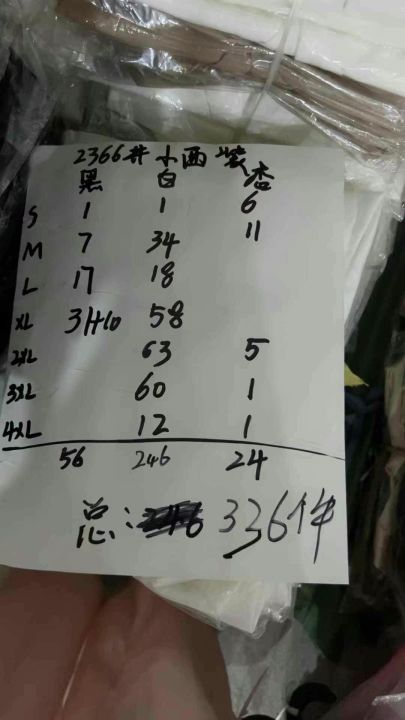 2366# 小西装
黑 白 杏
S 1 1 6
M 7 34 11
L 17 18
XL 31+10 58
2XL 63 5
3XL 60 1
4XL 12 1
56 246 24
总: 336件